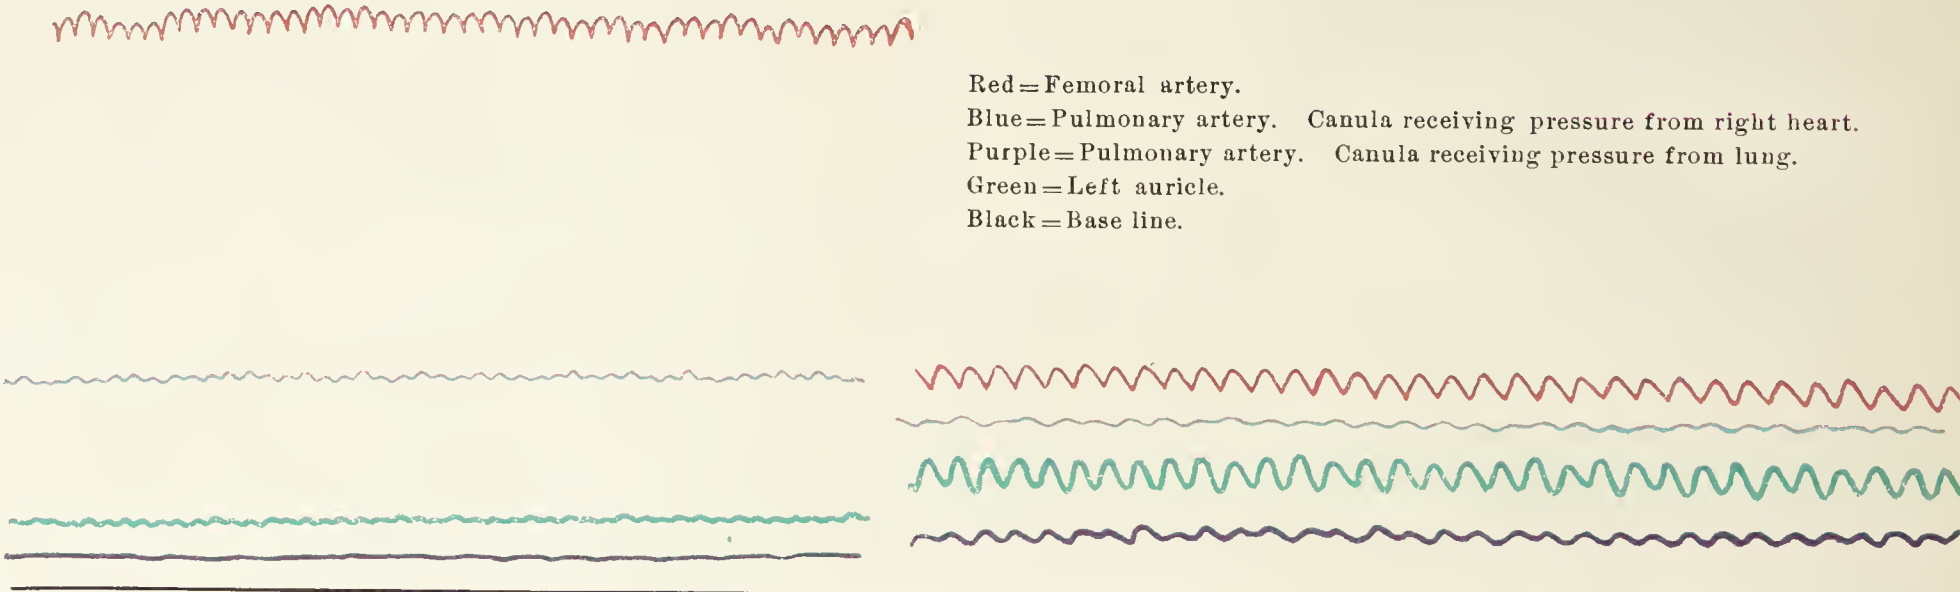 Red = Femoral artery.
Blue = Pulmonary artery. Canula receiving pressure from right heart.
Purple = Pulmonary artery. Canula receiving pressure from lung.
Green = Left auricle.
Black = Base line.